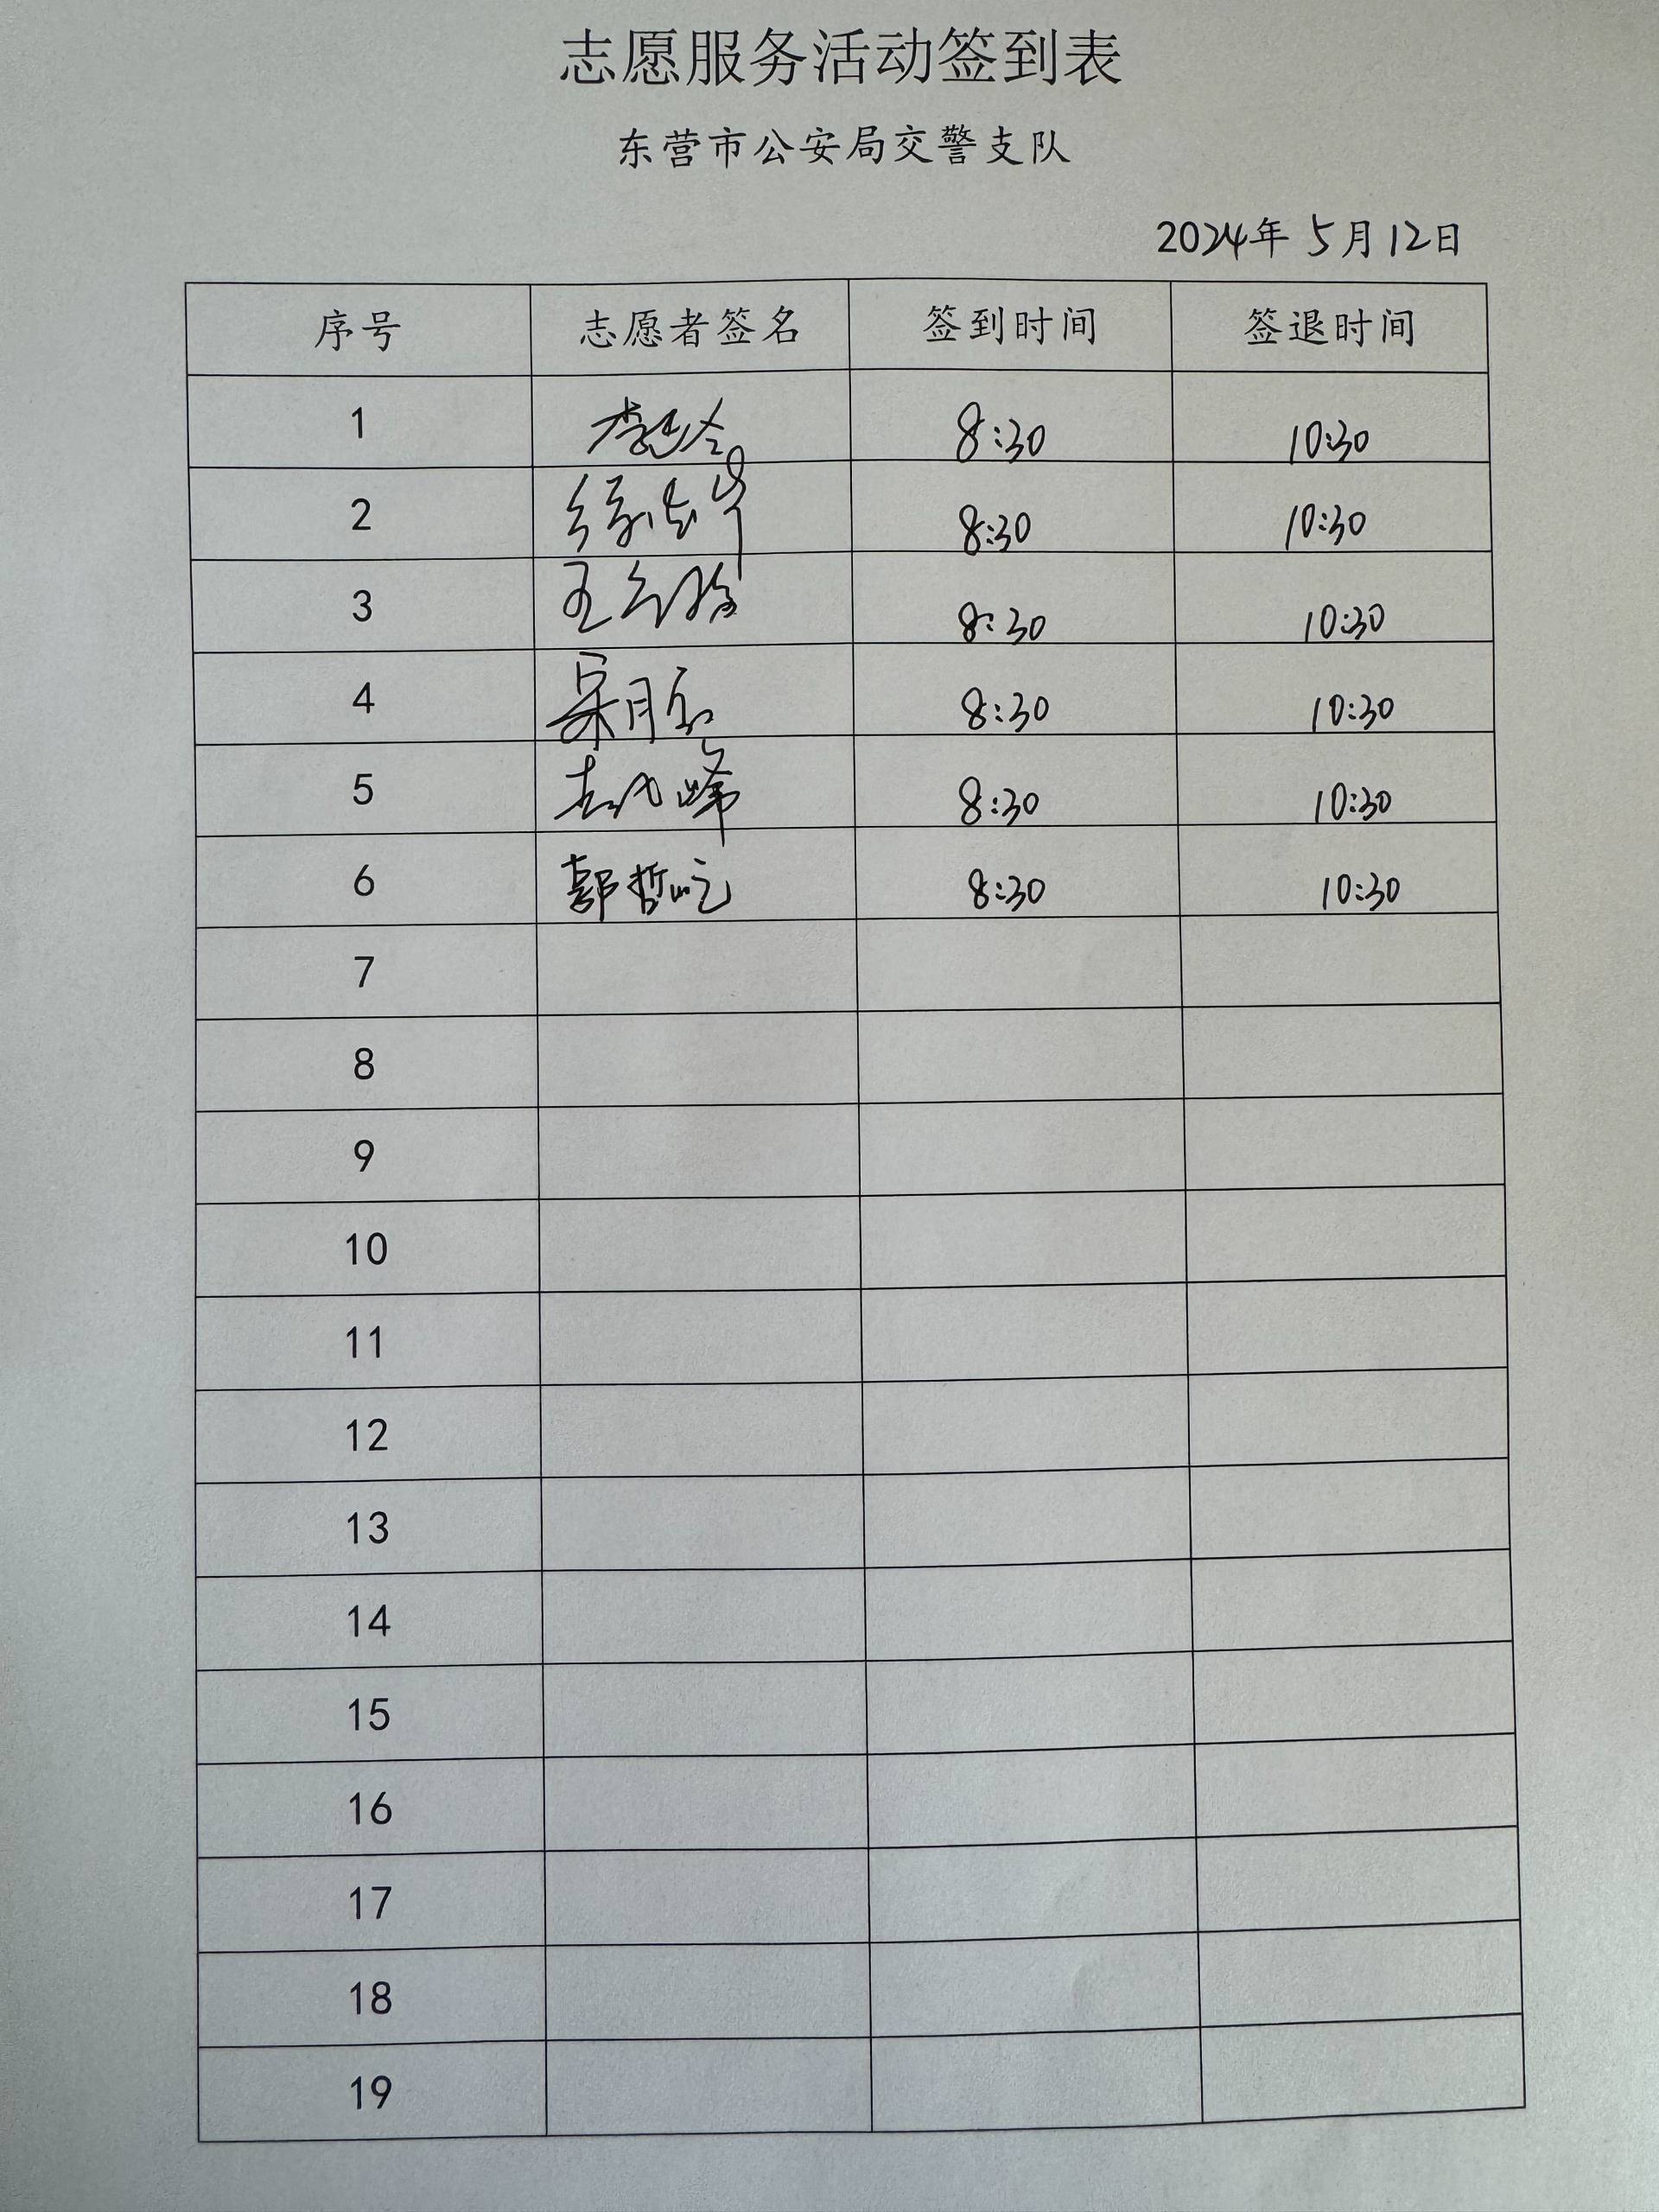 志愿服务活动签到表
东营市公安局交警支队
2024年 5月12日
序号 志愿者签名 签到时间 签退时间
1 8:30 10:30
2 8:30 10:30
3 王 8:30 10:30
4 8:30 10:30
5 峰 8:30 10:30
6 郭哲屹 8:30 10:30
7
8
9
10
11
12
13
14
15
16
17
18
19